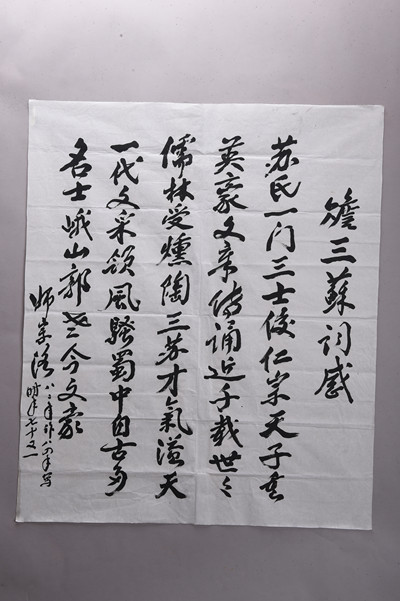 瞻三蘇祠感
苏氏一门三士俊仁宗天子重
英豪文章传诵近千载世々
儒林受燻陶三苏才氣溢天
一代文采领風騷蜀中自古多
名士峨山郭老今文豪
师崇
时年七十又一